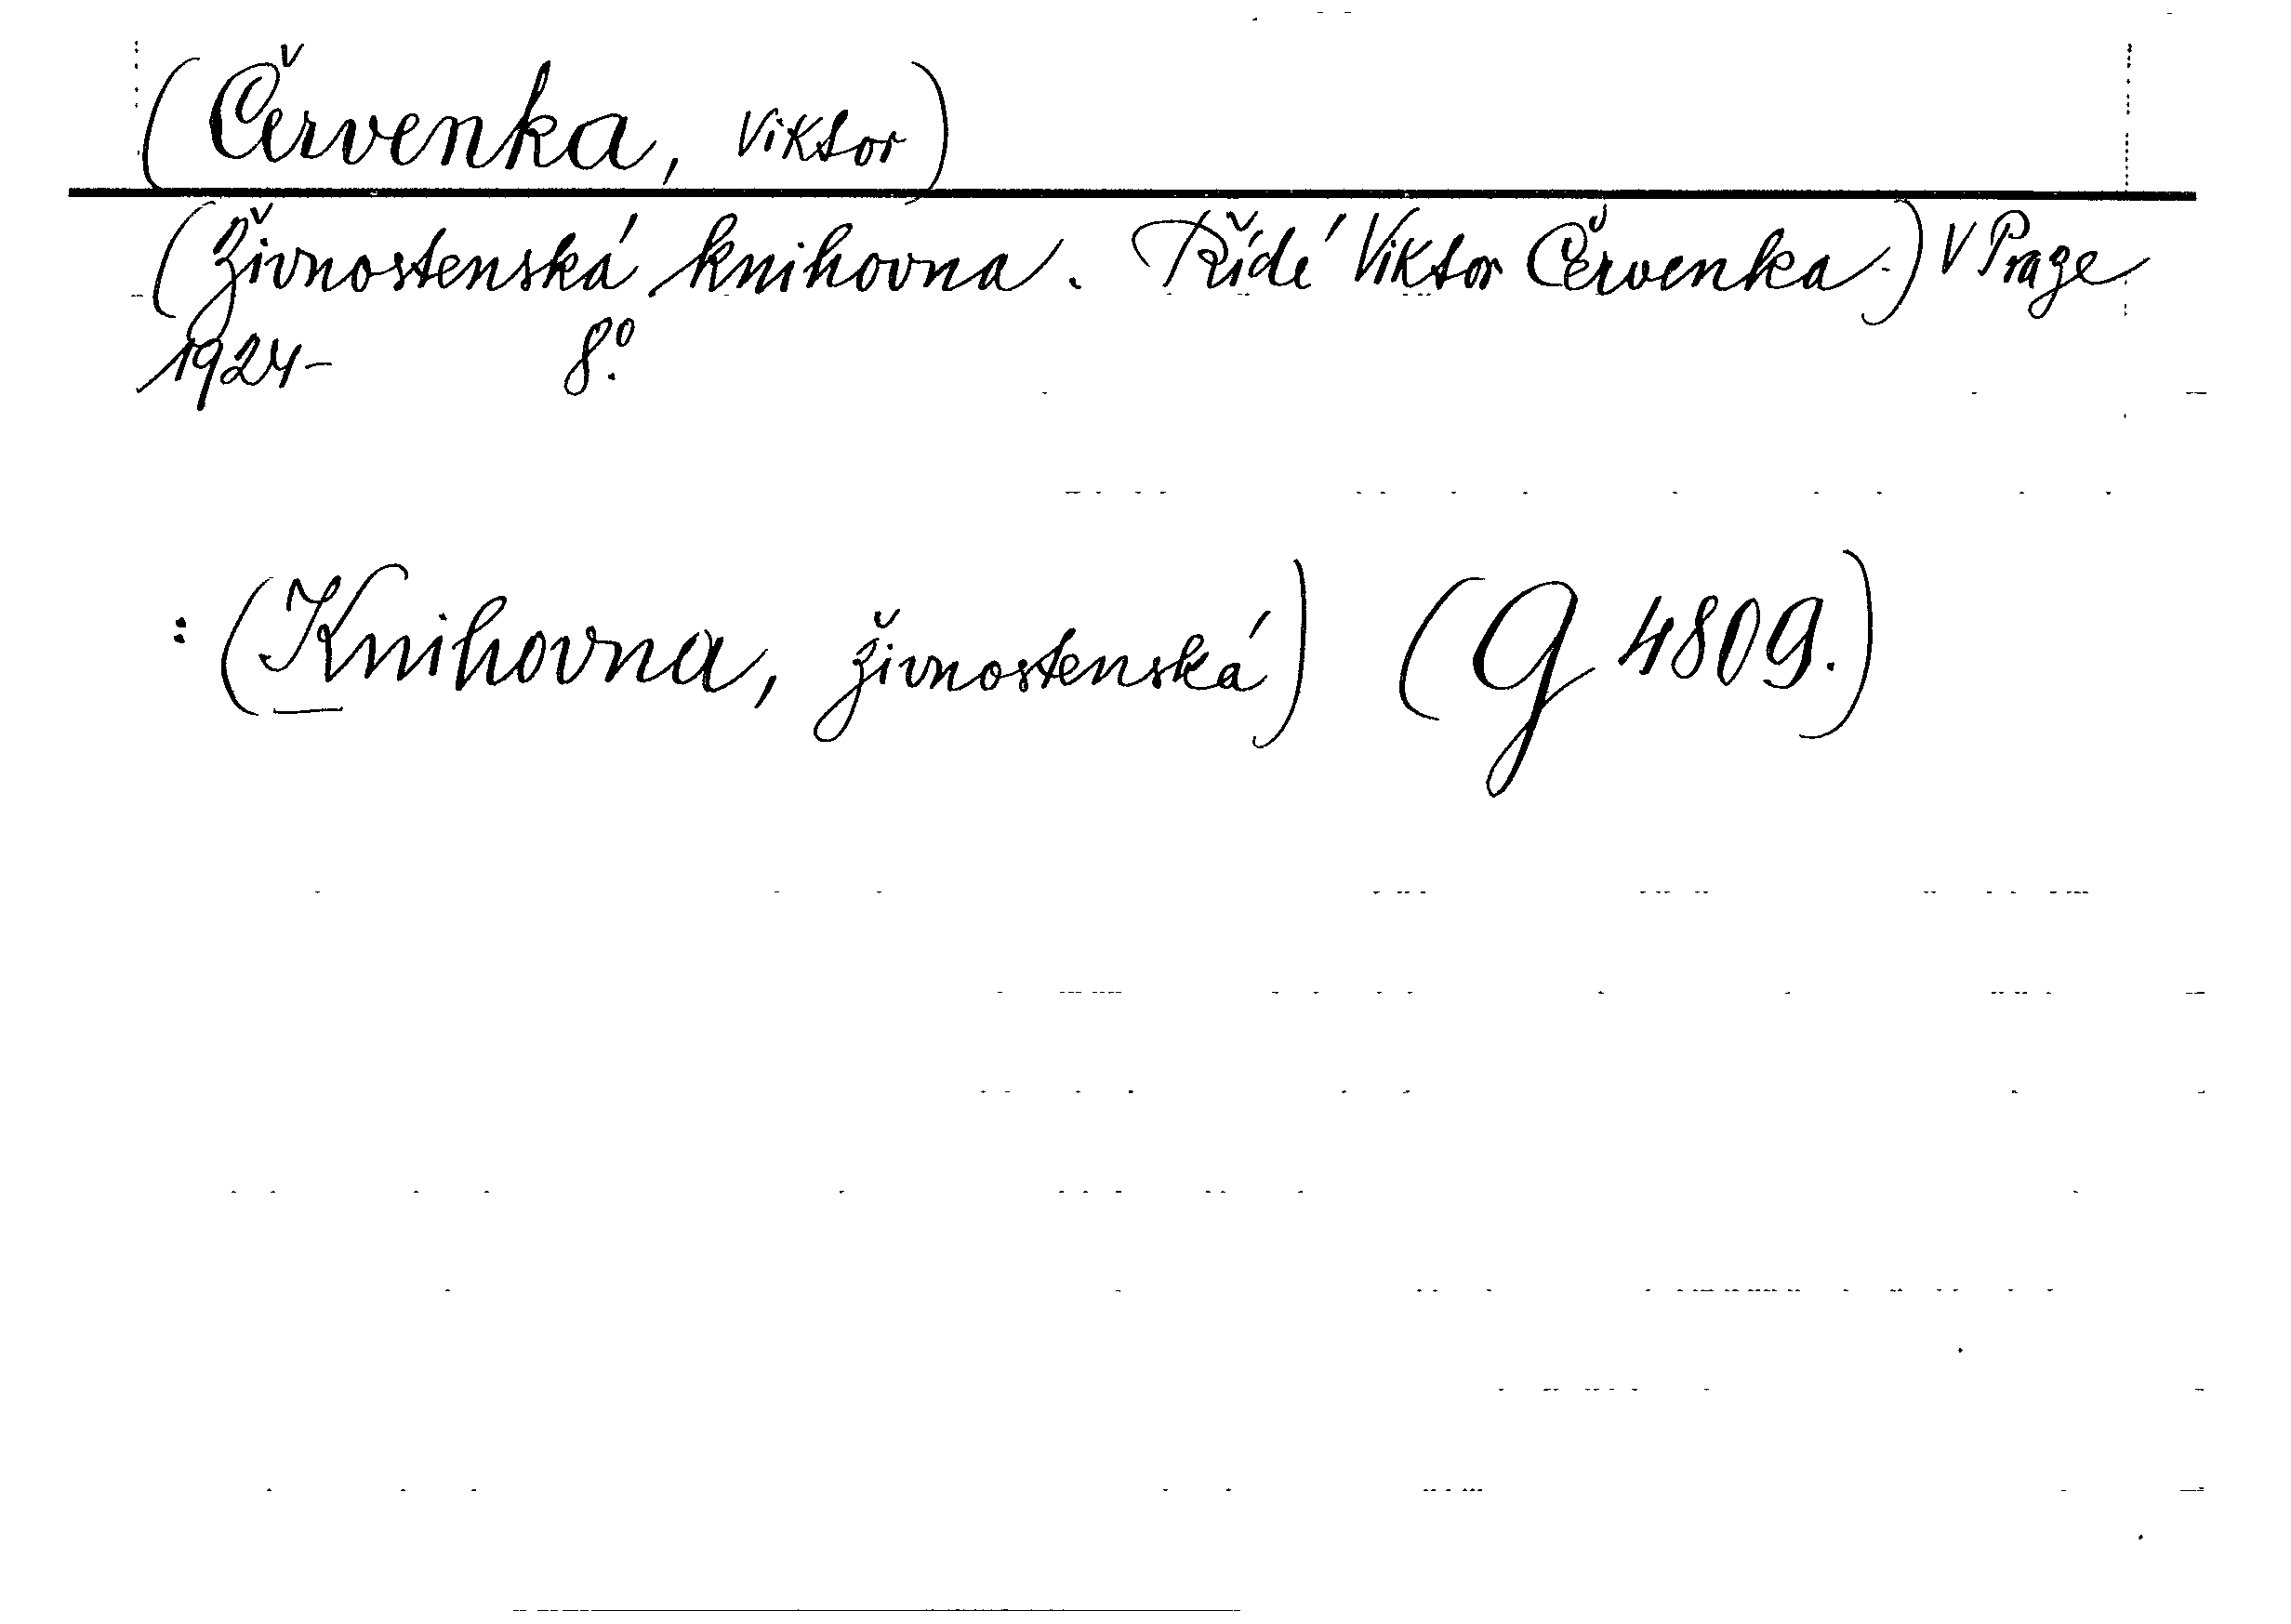 (Červenka, Viktor)
(Živnostenská knihovna. Řídí Viktor Červenka.) V Praze
1924- 8º.
: (Knihovna, živnostenská) (G 4809.)